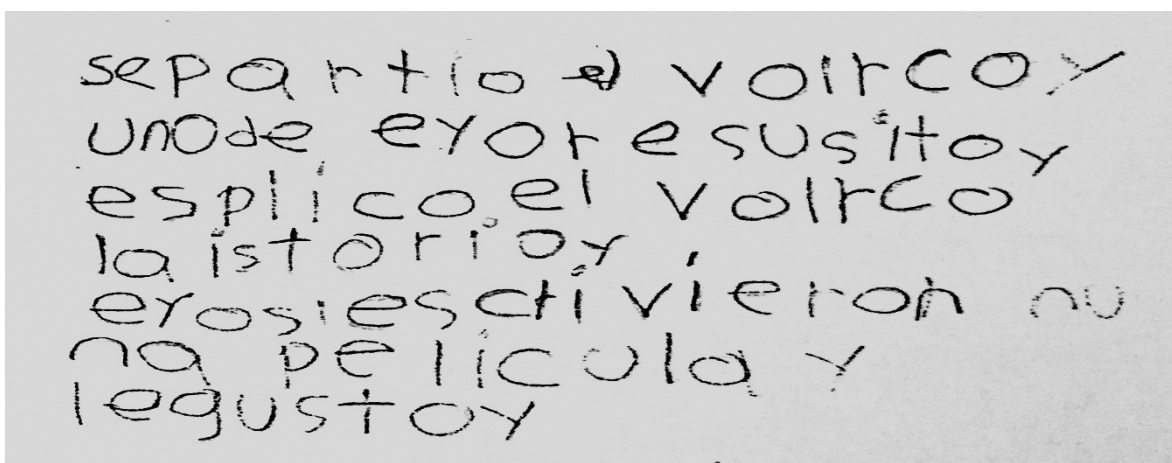 separtio el voircoy
unode eyoresusitoy
esplico el voirco
la istorioy
eyosiesctivieron nu
na pelicula y
legustoy